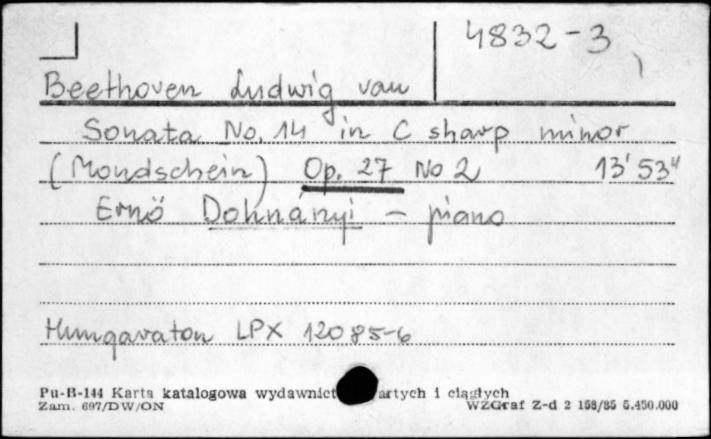 4832-3
Beethoven Ludwig van
Sonata No. 14 in C sharp minor
(Mondschein) Op. 27 No 2 13'53"
Ernö Dohnányi - piano
Hungaraton LPX 12085-6
Pu-B-144 Karta katalogowa wydawnict artych i ciągłych
Zam. 697/DW/ON WZGraf Z-d 2 158/85 5.450.000